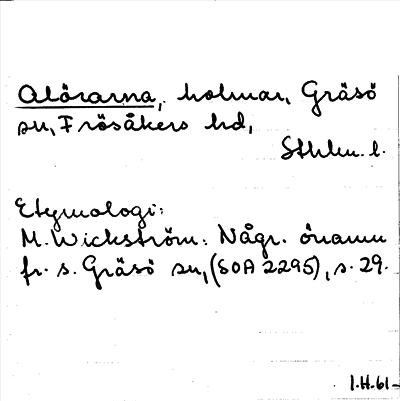 Alörarna, holmar, Gräsö
sn, Frösåkers hd,
Sthlm. l.
Etymologi:
M. Wickström: Någr. önamn
fr. s. Gräsö sn, (SOA 2295), s. 29.
I.H. 61